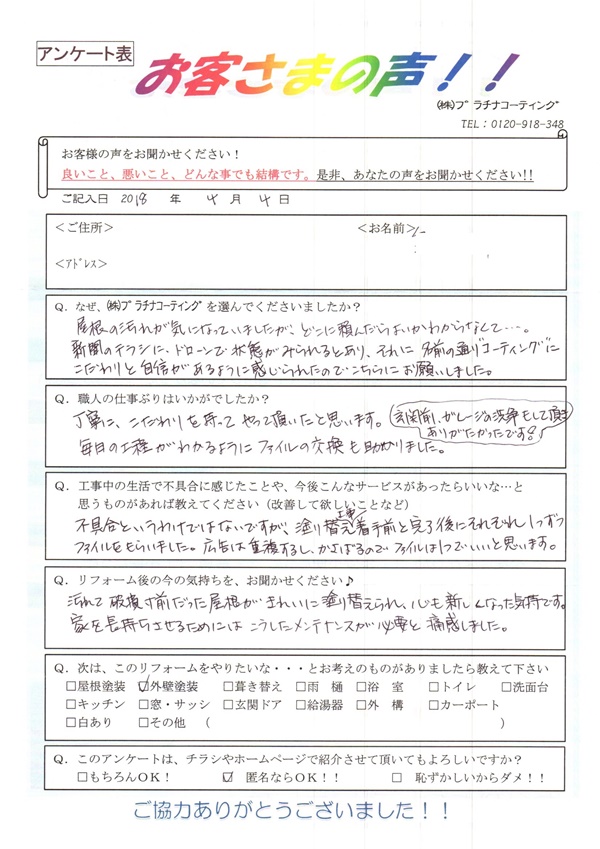 アンケート表
お客さまの声！！
㈱プラチナコーティング
TEL：0120-918-348
お客様の声をお聞かせください！
良いこと、悪いこと、どんな事でも結構です。是非、あなたの声をお聞かせください!!
ご記入日 2018 年 4 月 4 日
＜ご住所＞ ＜お名前＞
＜ｱﾄﾞﾚｽ＞
Q．なぜ、㈱プラチナコーティングを選んでくださいましたか？
屋根の汚れが気になっていましたが、どこに頼んだらよいかわからなくて…。
新聞のチラシに、ドローンで状態がみられるとあり、それに 名前の通り"コーティング"に
こだわりと自信があるように感じられたのでこちらにお願いしました。
Q．職人の仕事ぶりはいかがでしたか？
丁寧に、こだわりを持って やって頂いたと思います。
玄関前、ガレージの洗浄もして頂き
ありがたかったです！
毎日の工程がわかるように ファイルの交換も助かりました。
Q．工事中の生活で不具合に感じたことや、今後こんなサービスがあったらいいな…と
思うものがあれば教えてください（改善して欲しいことなど）
不具合というわけではないですが、塗り替え着手前と完了後にそれぞれ1つずつ
ファイルをもらいました。広告は重複するし、かさばるのでファイルは1つでいいと思います。
Q．リフォーム後の今の気持ちを、お聞かせください♪
汚れて 破損寸前だった屋根が きれいに塗り替えられ、心も新しくなった気持です。
家を長持ちさせるためには こうしたメンテナンスが必要と 痛感しました。
Q．次は、このリフォームをやりたいな・・・とお考えのものがありましたら教えて下さい
□屋根塗装 ☑外壁塗装 □葺き替え □雨 樋 □浴 室 □トイレ □洗面台
□キッチン □窓・サッシ □玄関ドア □給湯器 □外 構 □カーポート
□白あり □その他 （ ）
Q．このアンケートは、チラシやホームページで紹介させて頂いてもよろしいですか？
□もちろんOK！ ☑ 匿名ならOK！！ □ 恥ずかしいからダメ！！
ご協力ありがとうございました！！